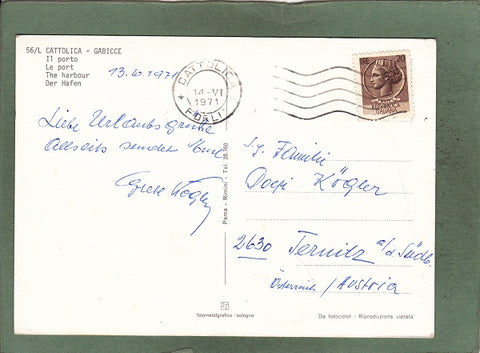 56/L CATTOLICA - GABICCE
Il porto
Le port
The harbour
Der Hafen
13.6.1971
CATTOLICA
14-VI
1971
FORLI
20
Liebe Urlaubsgrüße
Allseits sendet
Kögler
Fotometalgrafica - bologna
Pama - Rimini - Tel. 26.760
Familie
Poepi Kögler
2630 Ternitz a/d. Südb.
Österreich / Austria
Da fotocolor - Riproduzione vietata